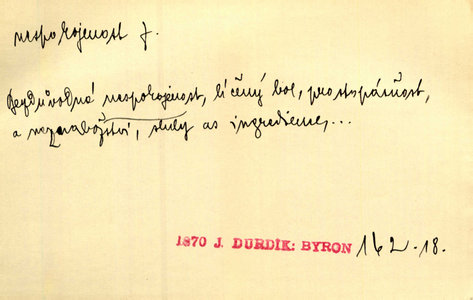 nespokojenost f.
Bezdůvodná nespokojenost, líčený bol, prostopášnost,
a neznabožství, sluly as ingredience,...
1870 J. DURDÍK: BYRON 162.18.